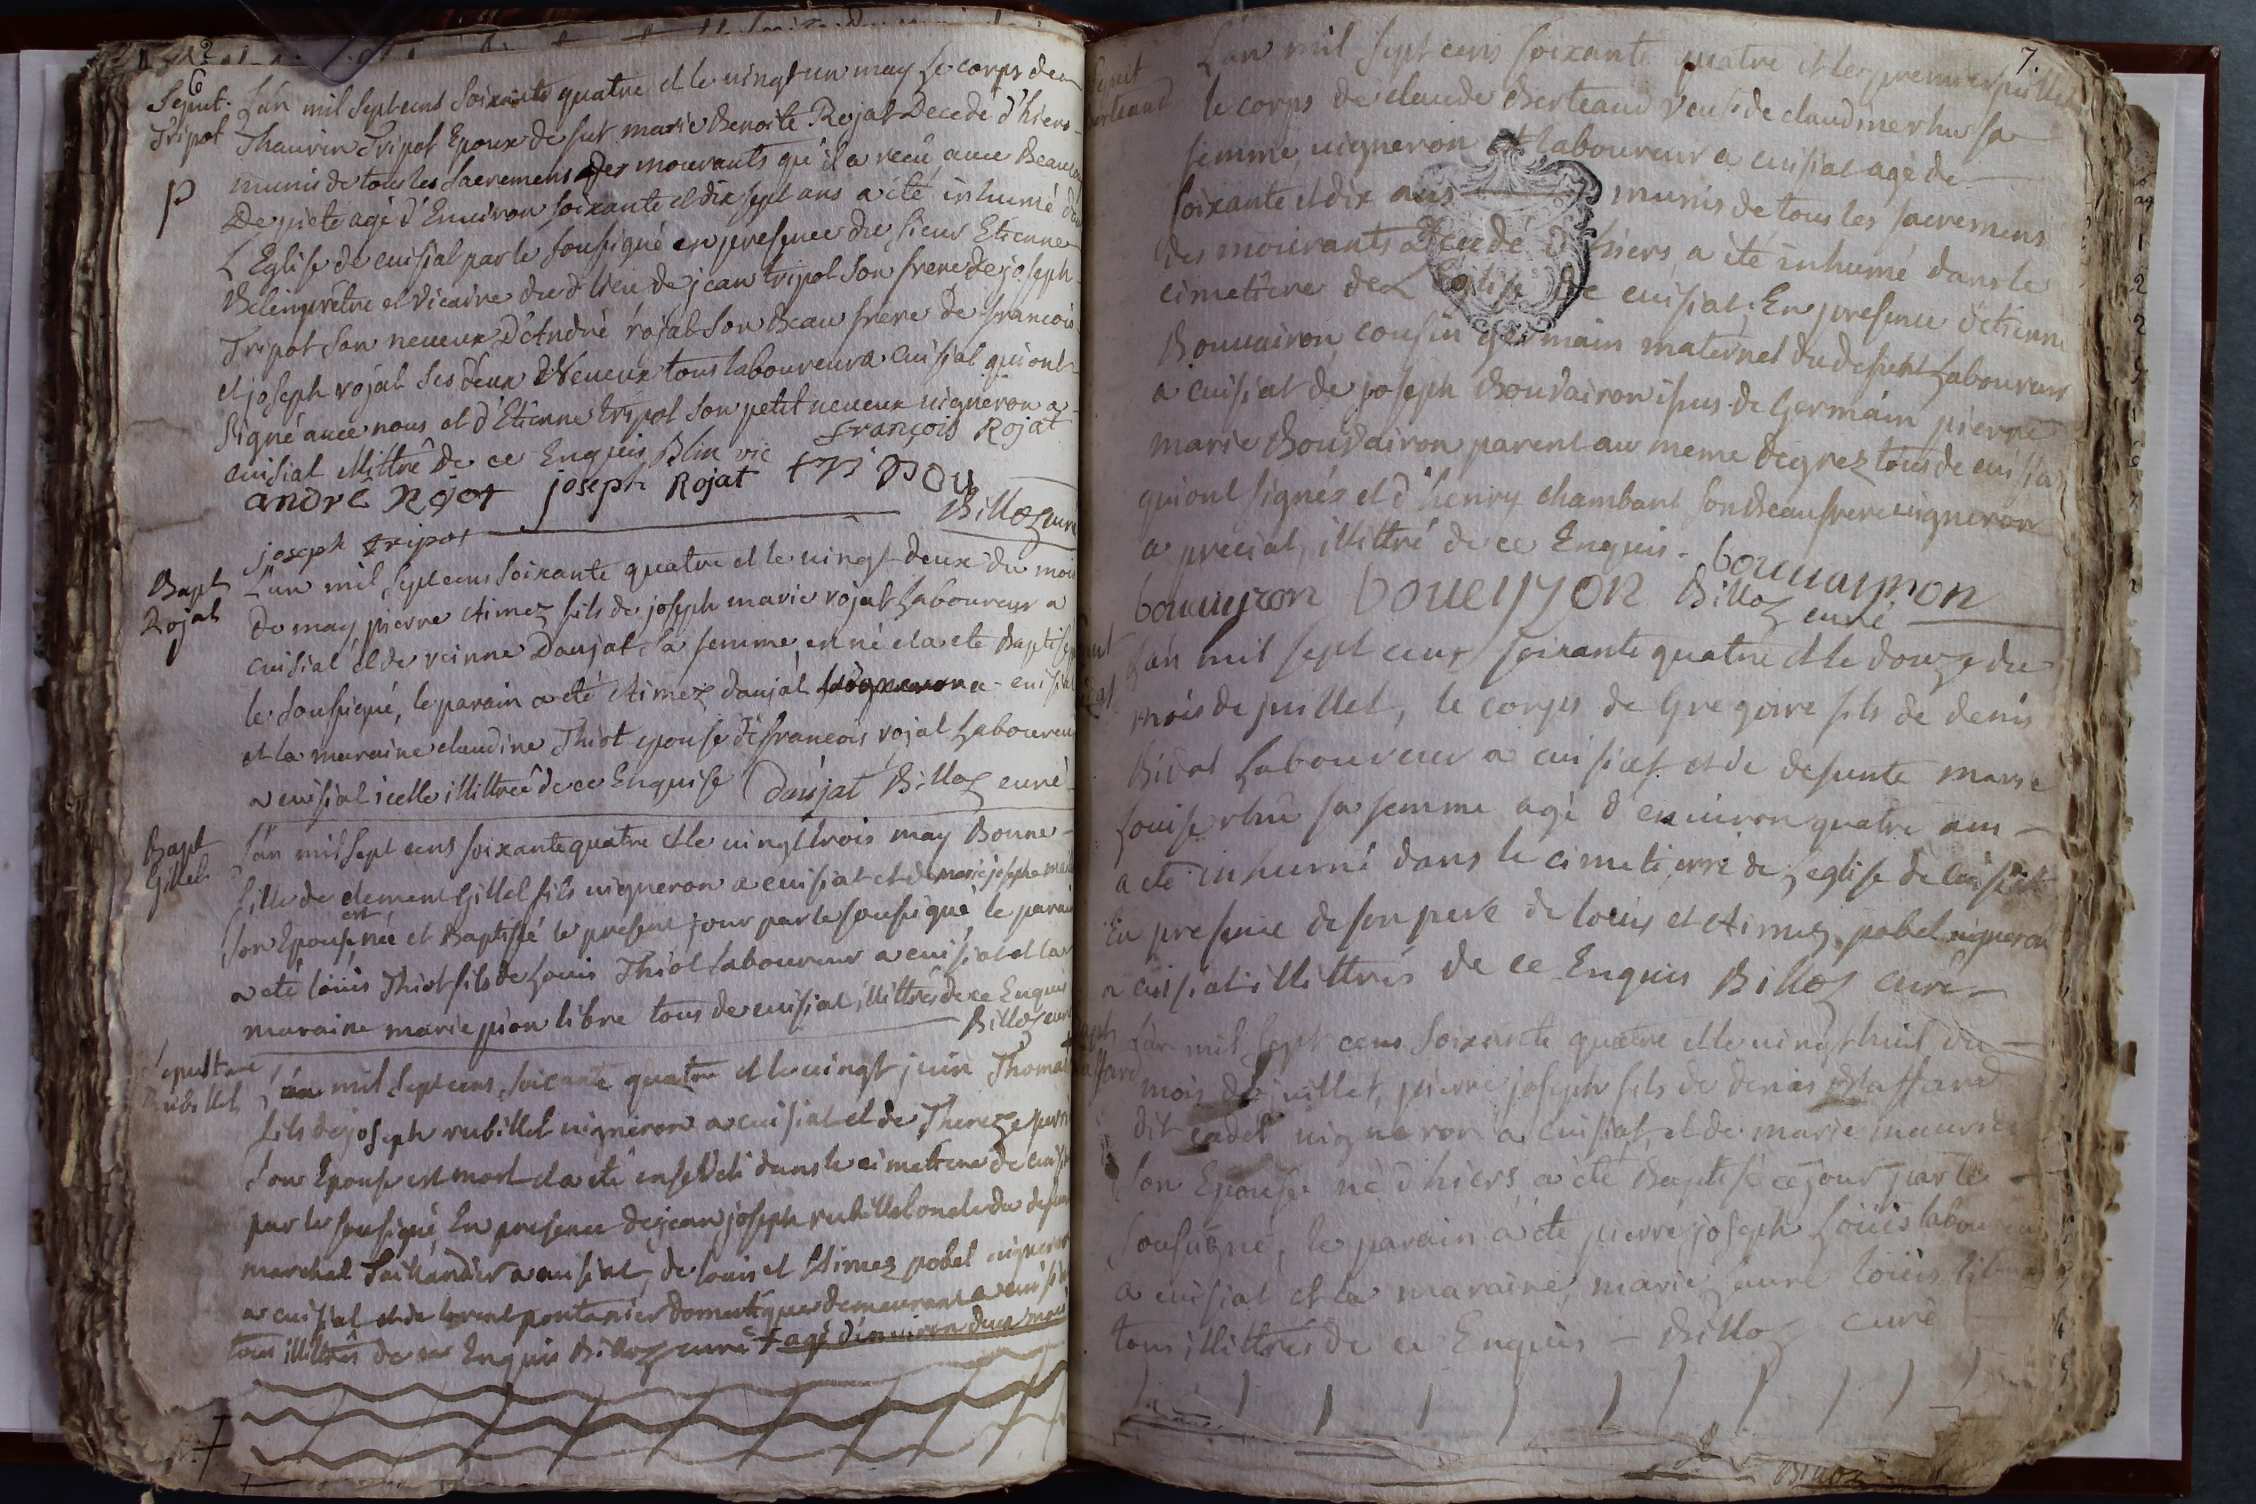 6
Sepult.
Tripot
L'an mil sept cens soixante quatre et le vingt un may le corps de
Thaurin Tripot Epoux de fut marie Benoite Rojat Decedé d'hiers
munis de tous les sacremens des mourants qu'il a recu avec Beaucoup
De pieté agé d'Environ soixante et dix sept ans a été inhumé dans
L'Eglise de cuisiat par le soussigné en presence du sieur Etienne
Belin prêtre et vicaire du d lieu de jean tripot son frere de joseph
Tripot son neveux d'André rojat son Beau frere de francois
et joseph rojat ses deux Neveux tous laboureur a cuisiat qui ont
signé avec nous et d'Etienne tripot son petit neveux vigneron a
cuisiat illittré de ce Enquis Blin vic françois Rojat
andré Rojat joseph Rojat tripou
Billoz curé
joseph tripot
Bapt
Rojat
L'an mil sept cens soixante quatre et le vingt deux du mois
de may pierre Aimez fils de joseph marie rojat Laboureur a
cuisiat et de reinne Daujat sa femme, est né et a été Baptisé par
le soussigné, le parain a été Aimez daujat vigneron a cuisiat
et la maraine claudine Thiot epouse de francois rojat Laboureur
a cuisiat icelle illittrée de ce Enquise Daujat Billoz curé
Bapt
Gillet
L'an mil sept cens soixante quatre et le vingt trois may Bonne
fille de clement Gillet fils vigneron a cuisiat et de marie josephe
son Epouse est née et Baptisée le present jour par le soussigné le parain
a été loüis Thiot fils de Louis Thiot laboureur a cuisiat et la
maraine marie pion libre tous de cuisiat, illittrés de ce Enquis
Billoz curé
Sepulture
Rubillet
L'an mil sept cens soixante quatre et le vingt juin Thomas
fils de joseph rubillet vigneron a cuisiat et de Thereze
son Epouse est mort et a été enseveli dans le cimettiere de cuisiat
par le soussigné, En presence de jean joseph rubillet oncle du defunt
marchal taillandier a cuisiat, de louis et Aimez pobel vigneron
a cuisiat et de lorent pontanier domestique demeurant a cuisiat
tous illittrés de ce Enquis Billoz curé + agé d'environ deux mois
7.
Sepult
Berteaud
L'an mil sept cens soixante quatre et le premier juillet
le corps de claude Berteaud veuf de claudine rhu sa
femme, vigneron et laboureur a cuisiat agé de
soixante et dix ans munis de tous les sacremens
des mourants decedé d'hiers, a été inhumé dans le
cimettiere de L'Eglise de cuisiat. En presence d'etienne
Bouvairon cousin germain maternel du defunt Laboureur
a cuisiat de joseph Bouvairon issus de Germain pierre
marie Bouvairon parent au meme degrez tous de cuisiat
qui ont signéz et d'henry chambard son Beau frere vigneron
a preciat, illittré de ce Enquis. bouvayron
bouvyron boueyron Billoz curé
L'an mil sept cens soixante quatre et le douze du
mois de juillet, le corps de Gregoire fils de denis
Bidat Laboureur a cuisiat et de defunte marie
Louise rhu sa femme agé d'environ quatre ans
a été inhumé dans le cimetierre de L'eglise de Cuisiat
En presence de son pere de louis et Aimez pobel vigneron
a cuisiat illittrés de ce Enquis Billoz curé
L'an mil sept cens soixante quatre et le vingt huit du
mois de juillet, pierre joseph fils de denis
dit cadet vigneron a cuisiat, et de marie
son Epouse né d'hiers a été Baptisé ce jour par le
soussigné, le parain a été pierre joseph Loüis laboureur
a cuisiat et la maraine, marie loüis libre
tous illittrés de ce Enquis Billoz curé
Billoz